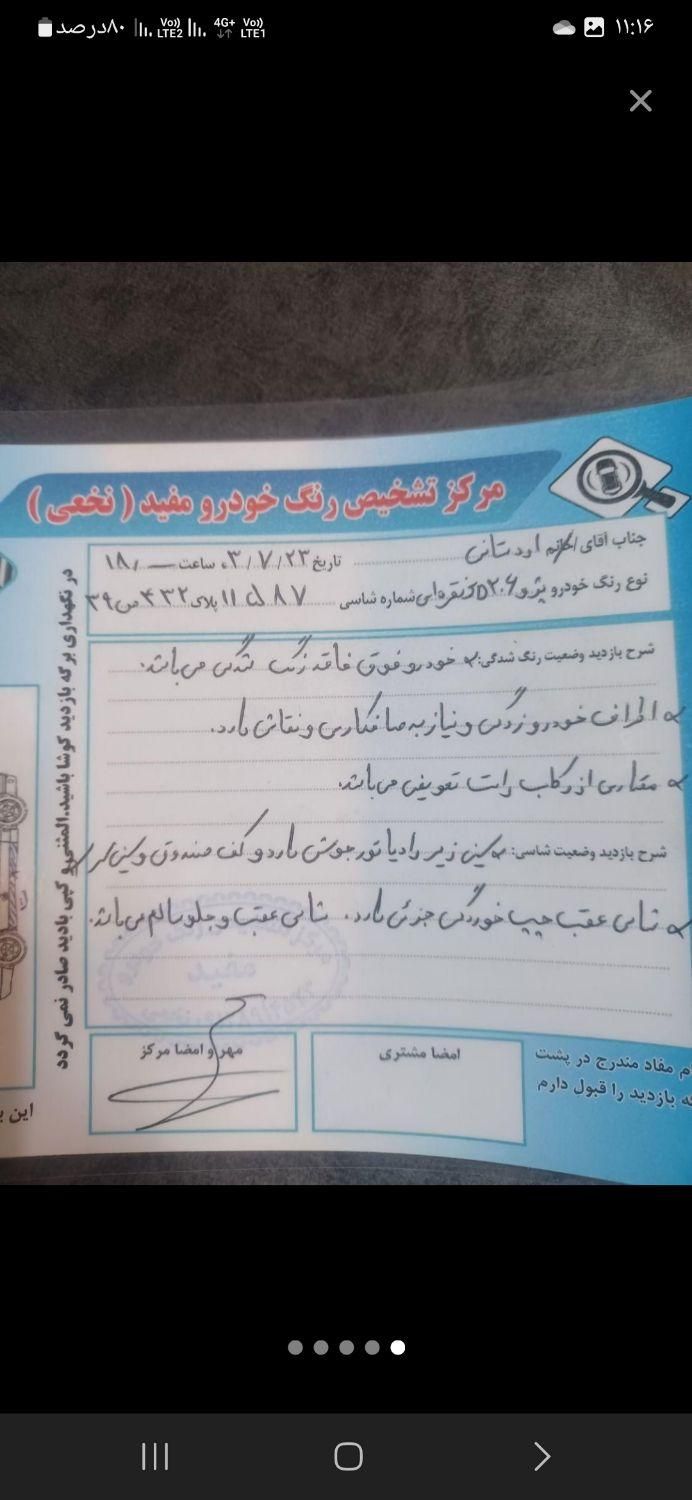 ۸۰درصد Vo)) LTE2 4G+ Vo)) LTE1 ۱۱:۱۶
مرکز تشخیص رنگ خودرو مفید ( نخعی )
جناب آقای / خانم تاریخ ۰۳/۷/۲۳ ساعت ۱۸/
نوع رنگ خودرو پژو ۲۰۶ نقره‌ای شماره شاسی ۸۷ ۱۱ پلاک ۴۳۲ ص ۳۹
شرح بازدید وضعیت رنگ شدگی: خودرو فوق فاقد رنگ شدگی می باشد.
اطراف خودرو زدگی و نیاز به صافکاری و نقاشی دارد.
مقداری از رکاب راست تعویض می باشد.
شرح بازدید وضعیت شاسی: سینی زیر رادیاتور جوش دارد و کف صندوق و سینی
شاسی عقب چپ خوردگی جزئی دارد. شاسی عقب و جلو سالم می باشد.
در نگهداری برگه بازدید کوشا باشید. المثنی و کپی بادید صادر نمی گردد
مفید
مهر و امضا مرکز
امضا مشتری
م مفاد مندرج در پشت
ه بازدید را قبول دارم
این